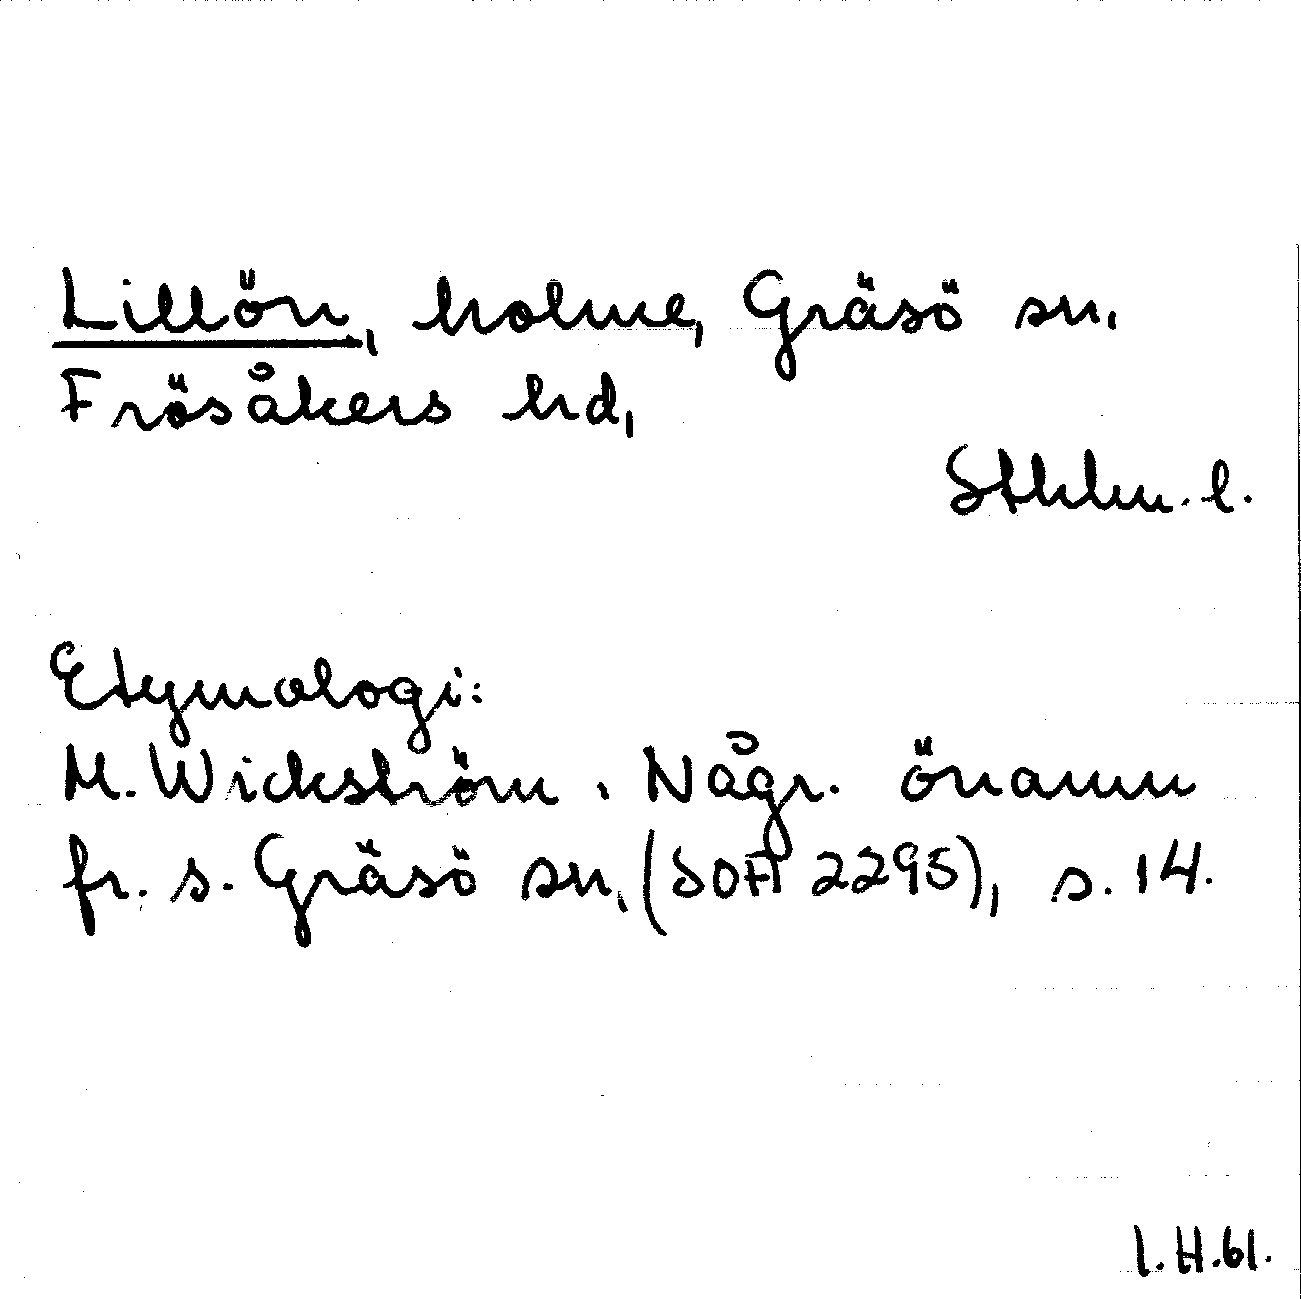 Lillön, holme, Gräsö sn.
Frösåkers hd,
Sthlm. l.
Etymologi:
M. Wickström. Någr. önamn
fr. s. Gräsö sn. (SOA 2295), s. 14.
I.H.61.